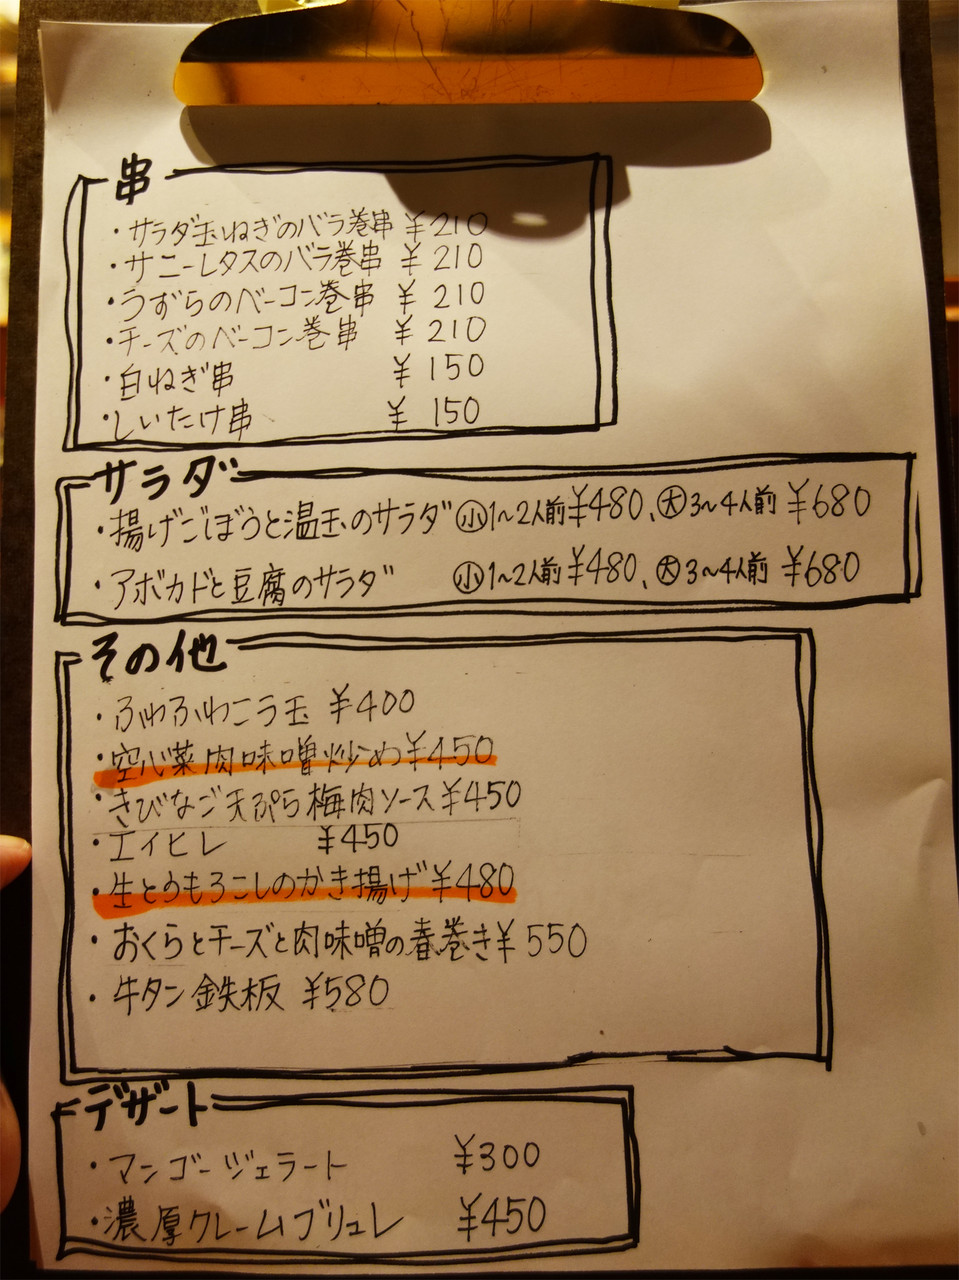 串
・サラダ玉ねぎのバラ巻串 ¥210
・サニーレタスのバラ巻串 ¥210
・うずらのベーコン巻串 ¥210
・チーズのベーコン巻串 ¥210
・白ねぎ串 ¥150
・しいたけ串 ¥150
サラダ
・揚げごぼうと温玉のサラダ ㊙小1~2人前¥480、大3~4人前 ¥680
・アボカドと豆腐のサラダ 小1~2人前¥480、大3~4人前 ¥680
その他
・ふわふわこう玉 ¥400
・空心菜肉味噌炒め¥450
・きびなご天ぷら梅肉ソース¥450
・エイヒレ ¥450
・生とうもろこしのかき揚げ¥480
・おくらとチーズと肉味噌の春巻き¥550
・牛タン鉄板 ¥580
デザート
・マンゴージェラート ¥300
・濃厚クレームブリュレ ¥450